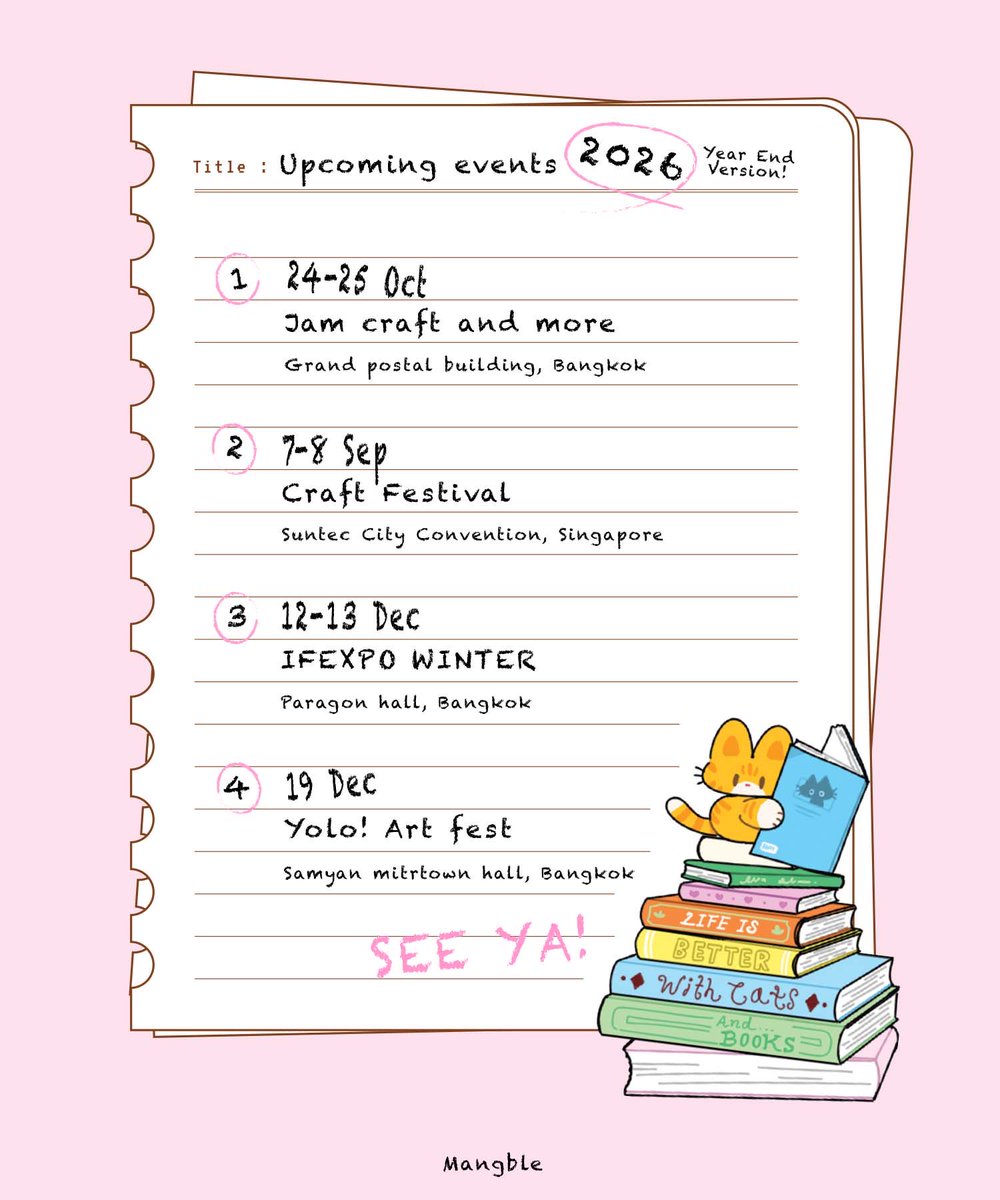 Title : Upcoming events 2026 Year End Version!
1 24-25 Oct
Jam craft and more
Grand postal building, Bangkok
2 7-8 Sep
Craft Festival
Suntec City Convention, Singapore
3 12-13 Dec
IFEXPO WINTER
Paragon hall, Bangkok
4 19 Dec
Yolo! Art fest
Samyan mitrtown hall, Bangkok
SEE YA!
LIFE IS
BETTER
With Cats
And...
BOOKS
Mangble